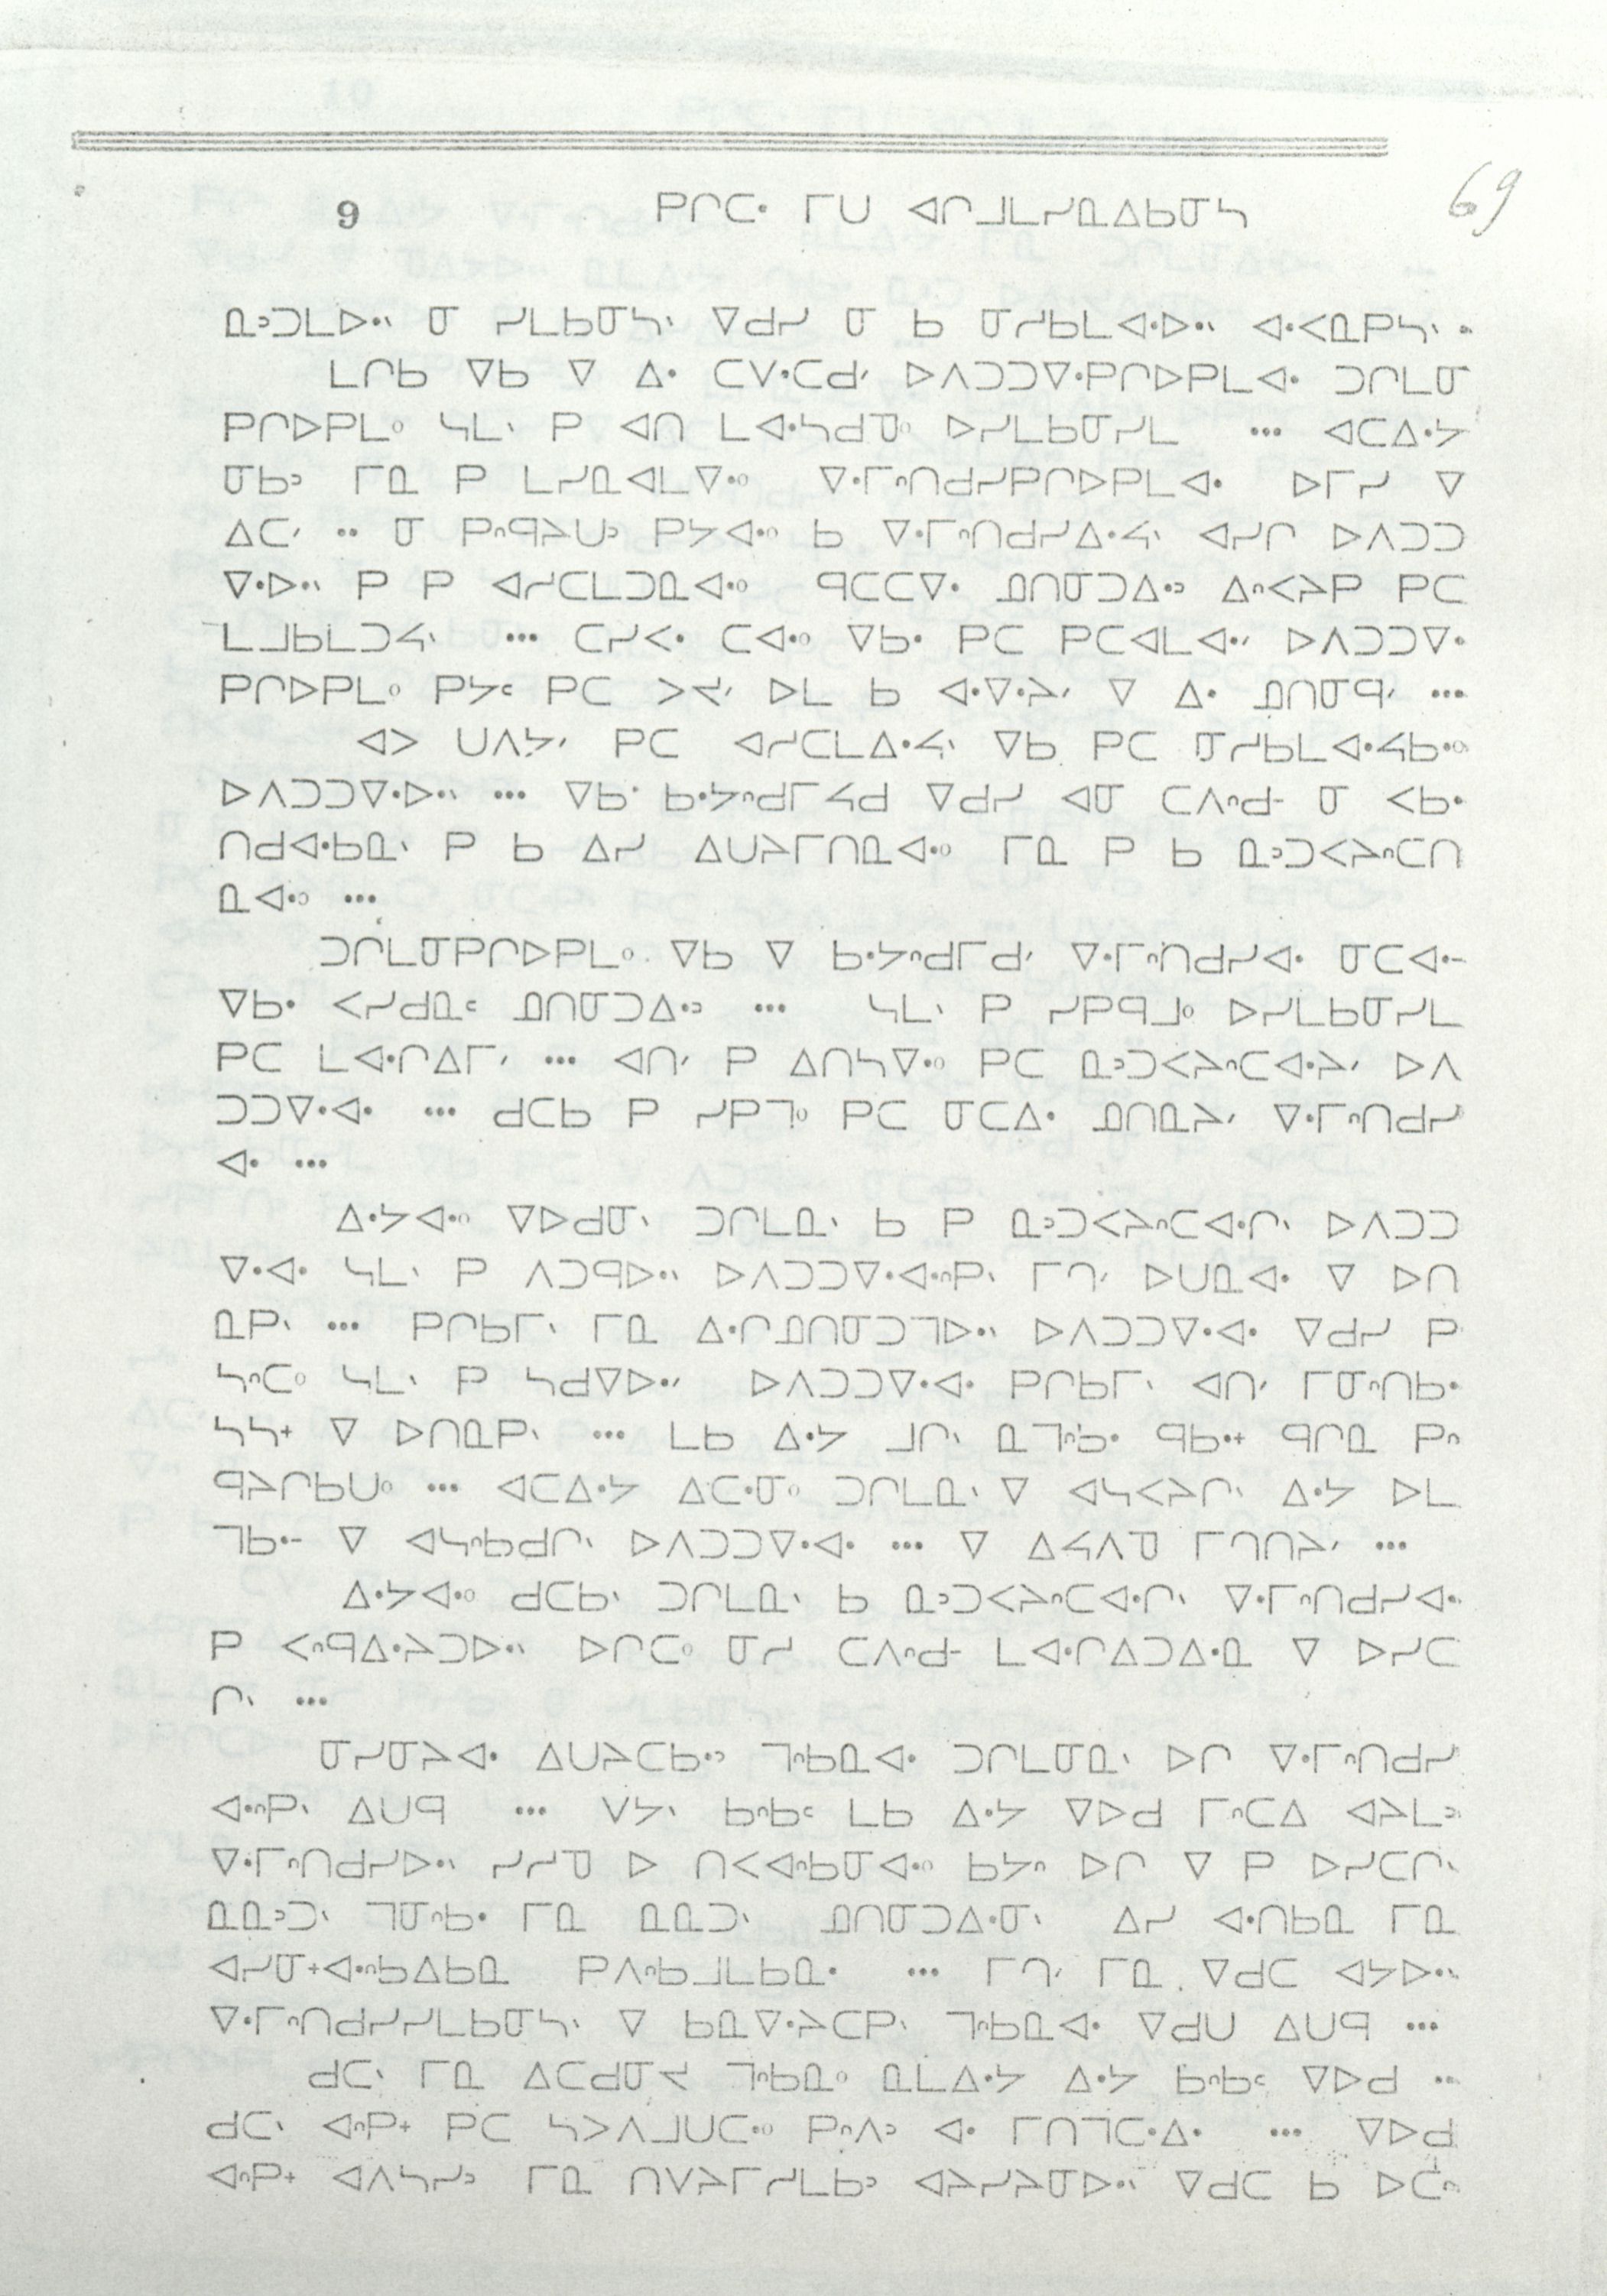 9 ᑭᒋᑕᐧ ᒥᑌ ᐊᒋᒧᒪᓯᓇᐃᑲᓂᓴ
69
ᓇᐣᑐᒪᐅᐧᐠ ᓂ ᓯᒪᑲᓂᓴᐠ ᐁᑯᓯ ᓂ ᑲ ᓂᓯᑲᒪᐊᐧᐅᐧᐠ ᐊᐧᐸᓇᑭᓴᐠ
ᒪᒋᑲ ᐁᑲ ᐁ ᐃᐧ ᑕᐯᐧᑕᑯᐟ ᐅᐱᑐᑐᐁᐧᑭᒋᐅᑭᒪᐊᐧ ᑐᒋᒪᓂ
ᑭᒋᐅᑭᒪᐤ ᓴᒪᐠ ᑭ ᐊᑎ ᒪᐊᐧᓴᑯᓀᐤ ᐅᓯᒪᑲᓂᓯᒪ ··· ᐊᑕᐃᐧᔭ
ᓂᑲᐣ ᒥᓇ ᑭ ᒪᓯᓇᐊᒪᐁᐧᐤ ᐁᐧᒥᐢᑎᑯᓯᑭᒋᐅᑭᒪᐊᐧ ᐅᒥᓯ ᐁ
ᐃᑕᐟ ·· ᓂ ᑭᐢᑫᔨᑌᐣ ᑭᔭᐊᐧᐤ ᑲ ᐁᐧᒥᐢᑎᑯᓯᐃᐧᔦᐠ ᐊᓯᒋ ᐅᐱᑐᑐ
ᐁᐧᐅᐧᐠ ᑭ ᑭ ᐊᓯᑕᒪᑐᓇᐊᐧᐤ ᑫᑕᑕᐁᐧ ᓅᑎᓂᑐᐃᐧᐣ ᐃᐢᐸᔨᑭ ᑭᑕ
ᒪᒧᑲᒪᑐᔦᐠ ··· ᑕᓯᐸᐧ ᑕᐊᐧᐤ ᐁᑲᐧ ᑭᑕ ᑭᑕᐊᒪᐊᐧᐟ ᐅᐱᑐᑐᐁᐧ
ᑭᒋᐅᑭᒪᐤ ᑭᔭᑦ ᑭᑕ ᐳᔪᐟ ᐅᒪ ᑲ ᐊᐧᐁᐧᔨᐟ ᐁ ᐃᐧ ᓅᑎᓂᑫᐟ ···
ᐊᐳ ᑌᐱᔭᐟ ᑭᑕ ᐊᓯᑕᒪᐃᐧᔦᐠ ᐁᑲ ᑭᑕ ᓂᓯᑲᒪᐊᐧᔦᑲᐧᐤ
ᐅᐱᑐᑐᐁᐧᐅᐧᐠ ··· ᐁᑲᐧ ᑲᐧᔭᐢᑯᒥᔦᑯ ᐁᑯᓯ ᐊᓂ ᑕᐱᐢᑯ- ᓂ ᐸᑲᐧ
ᑎᑯᐊᐧᑲᓇᐠ ᑭ ᑲ ᐃᓯ ᐃᑌᔨᒥᑎᓇᐊᐧᐤ ᒥᓇ ᑭ ᑲ ᓇᐣᑐᐸᔨᐢᑕᑎ
ᓇᐊᐧᐤ ···
ᑐᒋᒪᓂᑭᒋᐅᑭᒪᐤ ᐁᑲ ᐁ ᑲᐧᔭᐢᑯᒥᑯᐟ ᐁᐧᒥᐢᑎᑯᓯᐊᐧ ᓂᑕᐊᐧ-
ᐁᑲᐧ ᐸᓯᑯᓇᑦ ᓅᑎᓂᑐᐃᐧᐣ ··· ᓴᒪᐠ ᑭ ᓯᑭᑫᒧᐤ ᐅᓯᒪᑲᓂᓯᒪ
ᑭᑕ ᒪᐊᐧᒋᐃᒥᐟ ··· ᐊᑎᐟ ᑭ ᐃᑎᓴᐁᐧᐤ ᑭᑕ ᓇᐣᑐᐸᔨᐢᑕᐊᐧᔨᐟ ᐅᐱ
ᑐᑐᐁᐧᐊᐧ ··· ᑯᑕᑲ ᑭ ᓯᑭᒣᐤ ᑭᑕ ᓂᑕᐃᐧ ᓅᑎᓇᔨᐟ ᐁᐧᒥᐢᑎᑯᓯ
ᐊᐧ ···
ᐃᐧᔭᐊᐧᐤ ᐁᐅᑯᓂᐠ ᑐᒋᒪᓇᐠ ᑲ ᑭ ᓇᐣᑐᐸᔨᐢᑕᐊᐧᒋᐠ ᐅᐱᑐᑐ
ᐁᐧᐊᐧ ᓴᒪᐠ ᑭ ᐱᑐᑫᐅᐧᐠ ᐅᐱᑐᑐᐁᐧᐊᐧᐢᑭᐠ ᒥᒉᐟ ᐅᑌᓇᐊᐧ ᐁ ᐅᑎ
ᓇᑭᐠ ··· ᑭᒋᑲᒥᐠ ᒥᓇ ᐃᐧᒋᓅᑎᓂᑐᒣᐅᐧᐠ ᐅᐱᑐᑐᐁᐧᐊᐧ ᐁᑯᓯ ᑭ
ᓴᐢᑕᐤ ᓴᒪᐠ ᑭ ᓴᑯᐁᐅᐧᐟ ᐅᐱᑐᑐᐁᐧᐊᐧ ᑭᒋᑲᒥᐠ ᐊᑎᐟ ᒥᓂᐢᑎᑲᐧ
ᓴᓴᕀ ᐁ ᐅᑎᓇᑭᐠ ··· ᒪᑲ ᐃᐧᔭ ᒧᒋᐠ ᓇᒣᐢᑲᐧ ᑫᑲᐧᕀ ᑫᒋᓇ ᑭᐢ
ᑫᔨᒋᑲᑌᐤ ··· ᐊᑕᐃᐧᔭ ᐃᑕᐧᓂᐤ ᑐᒋᒪᓇᐠ ᐁ ᐊᓴᐸᔨᒋᐠ ᐃᐧᔭ ᐅᒪ
ᒣᑲᐧ- ᐁ ᐊᓴᐢᑲᑯᒋᐠ ᐅᐱᑐᑐᐁᐧᐊᐧ ··· ᐁ ᐃᔦᐱᓀ ᒥᒉᑎᔨᐟ ···
ᐃᐧᔭᐊᐧᐤ ᑯᑕᑲᐠ ᑐᒋᒪᓇᐠ ᑲ ᓇᐣᑐᐸᔨᐢᑕᐊᐧᒋᐠ ᐁᐧᒥᐢᑎᑯᓯᐊᐧ
ᑭ ᐸᐢᑫᐃᐧᔨᑐᐅᐧᐠ ᐅᒋᑕᐤ ᓂᓯ ᑕᐱᐢᑯ- ᒪᐊᐧᒋᐃᑐᐃᐧᓇ ᐁ ᐅᓯᑕ
ᒋᐠ ···
ᓂᓯᓇᔨᐊᐧ ᐃᑌᔨᑕᑲᐧᐣ ᒣᐢᑲᓇᐊᐧ ᑐᒋᒪᓂᓇᐠ ᐅᒋ ᐁᐧᒥᐢᑎᑯᓯ
ᐊᐧᐢᑭᐠ ᐃᑌᑫ ··· ᐯᔭᐠ ᑲᐢᑲᑦ ᒪᑲ ᐃᐧᔭ ᐁᐅᑯ ᒥᐢᑕᐃ ᐊᔨᒪᐣ
ᐁᐧᒥᐢᑎᑯᓯᐅᐧᐠ ᓯᓯᓀ ᐅ ᑎᐸᐊᐢᑲᓂᐊᐧᐤ ᑲᔭᐢ ᐅᒋ ᐁ ᑭ ᐅᓯᑕᒋᐠ
ᓇᓇᐣᑐᐠ ᒣᓂᐢᑲᐧ ᒥᓇ ᓇᓇᑐᐠ ᓅᑎᓂᑐᐃᐧᓂᐠ ᐃᓯ ᐊᐧᑎᑲᓇ ᒥᓇ
ᐊᓯᓂᕀᐊᐧᐢᑲᐃᑲᓇ ᑭᐱᐢᑲᒧᒪᑲᓇᐧ ··· ᒥᒉᐟ ᒥᓇ ᐁᑯᑕ ᐊᔭᐅᐧᐠ
ᐁᐧᒥᐢᑎᑯᓯᓯᒪᑲᓂᓴᐠ ᐁ ᑲᓇᐁᐧᔨᑕᑭᐠ ᒣᐢᑲᓇᐊᐧ ᐁᑯᑌ ᐃᑌᑫ ···
ᑯᑕᐠ ᒥᓇ ᐃᑕᑯᓂᔪ ᒣᐢᑲᓇᐤ ᓇᒪᐃᐧᔭ ᐃᐧᔭ ᑲᐢᑲᑦ ᐁᐅᑯ ··
ᑯᑕᐠ ᐊᐢᑭᕀ ᑭᑕ ᓴᐳᐱᒧᑌᑕᐧᐤ ᑭᐢᐱᐣ ᐊᐧ ᒥᑎᒣᑕᐧᐃᐧ ··· ᐁᐅᑯ
ᐊᐢᑭᕀ ᐊᐱᓴᓯᐣ ᒥᓇ ᑎᐯᔨᒥᓯᒪᑲᐣ ᐊᔨᓯᔨᓂᐅᐧᐠ ᐁᑯᑕ ᑲ ᐅᑕᐢ